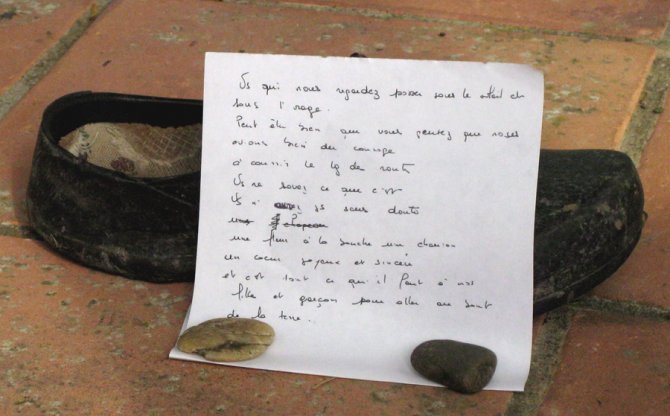 Vs qui nous regardez passer sous le soleil et
sous l'orage.
Peut être bien que vous pensez que nous
avons bien du courage
à courir le lg de routes
Vs ne savez ce que c'est
Vs n' avez js sans doute
une fleur à la bouche une chanson
un coeur joyeux et sincère
et c'est tout ce qu'il faut à nos
fille et garçon pour aller au bout
de la terre..